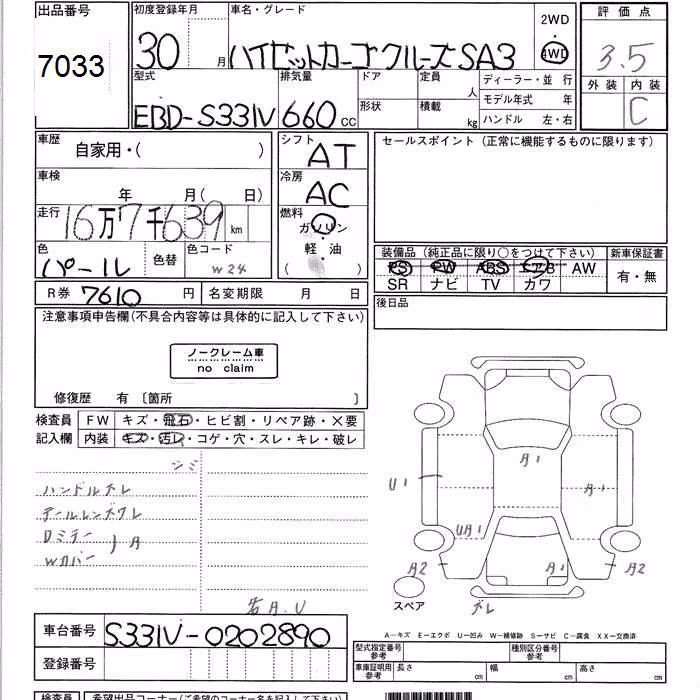 出品番号
7033
初度登録年月
30 月
車名・グレード
ハイゼットカーゴクルーズSA3
2WD
4WD
評価点
3.5
外装 内装
C
型式
EBD-S331V
排気量
660 cc
ドア
形状
定員 人
積載 kg
ディーラー・並 行
モデル年式 年
ハンドル 左・右
車歴
自家用・( )
シフト
AT
車検
年 月( 日)
冷房
AC
走行
16万7千639 km
燃料
ガソリン
軽・油
( )
色
パール
色替
色コード
W24
R券 7610 円
名変期限 月 日
セールスポイント (正常に機能するものに限ります)
装備品 (純正品に限り○をつけて下さい)
PS PW ABS エアB AW
SR ナビ TV カワ
新車保証書
有・無
後日品
注意事項申告欄(不具合内容等は具体的に記入して下さい)
ノークレーム車
no claim
修復歴 有 〔箇所 〕
検査員
記入欄
FW キズ・飛石・ヒビ割・リペア跡・×要
内装 キズ・汚レ・コゲ・穴・スレ・キレ・破レ
シミ
ハンドルスレ
テールレンズワレ
Dミラー
Wカバー
A
A1
U1
A1
UA1
A1
A2
A2
スペア
ズレ
若A.U
車台番号 S331V-0202890
登録番号
A-キズ E-エクボ U-凹み W-補修跡 S-サビ C-腐食 XX-交換済
型式指定番号
参考
種別区分番号
参考
車庫証明用
参考
長さ cm
幅 cm
高さ cm
検査員
希望出品コーナー(ご希望のコーナー名を記入して下さい)